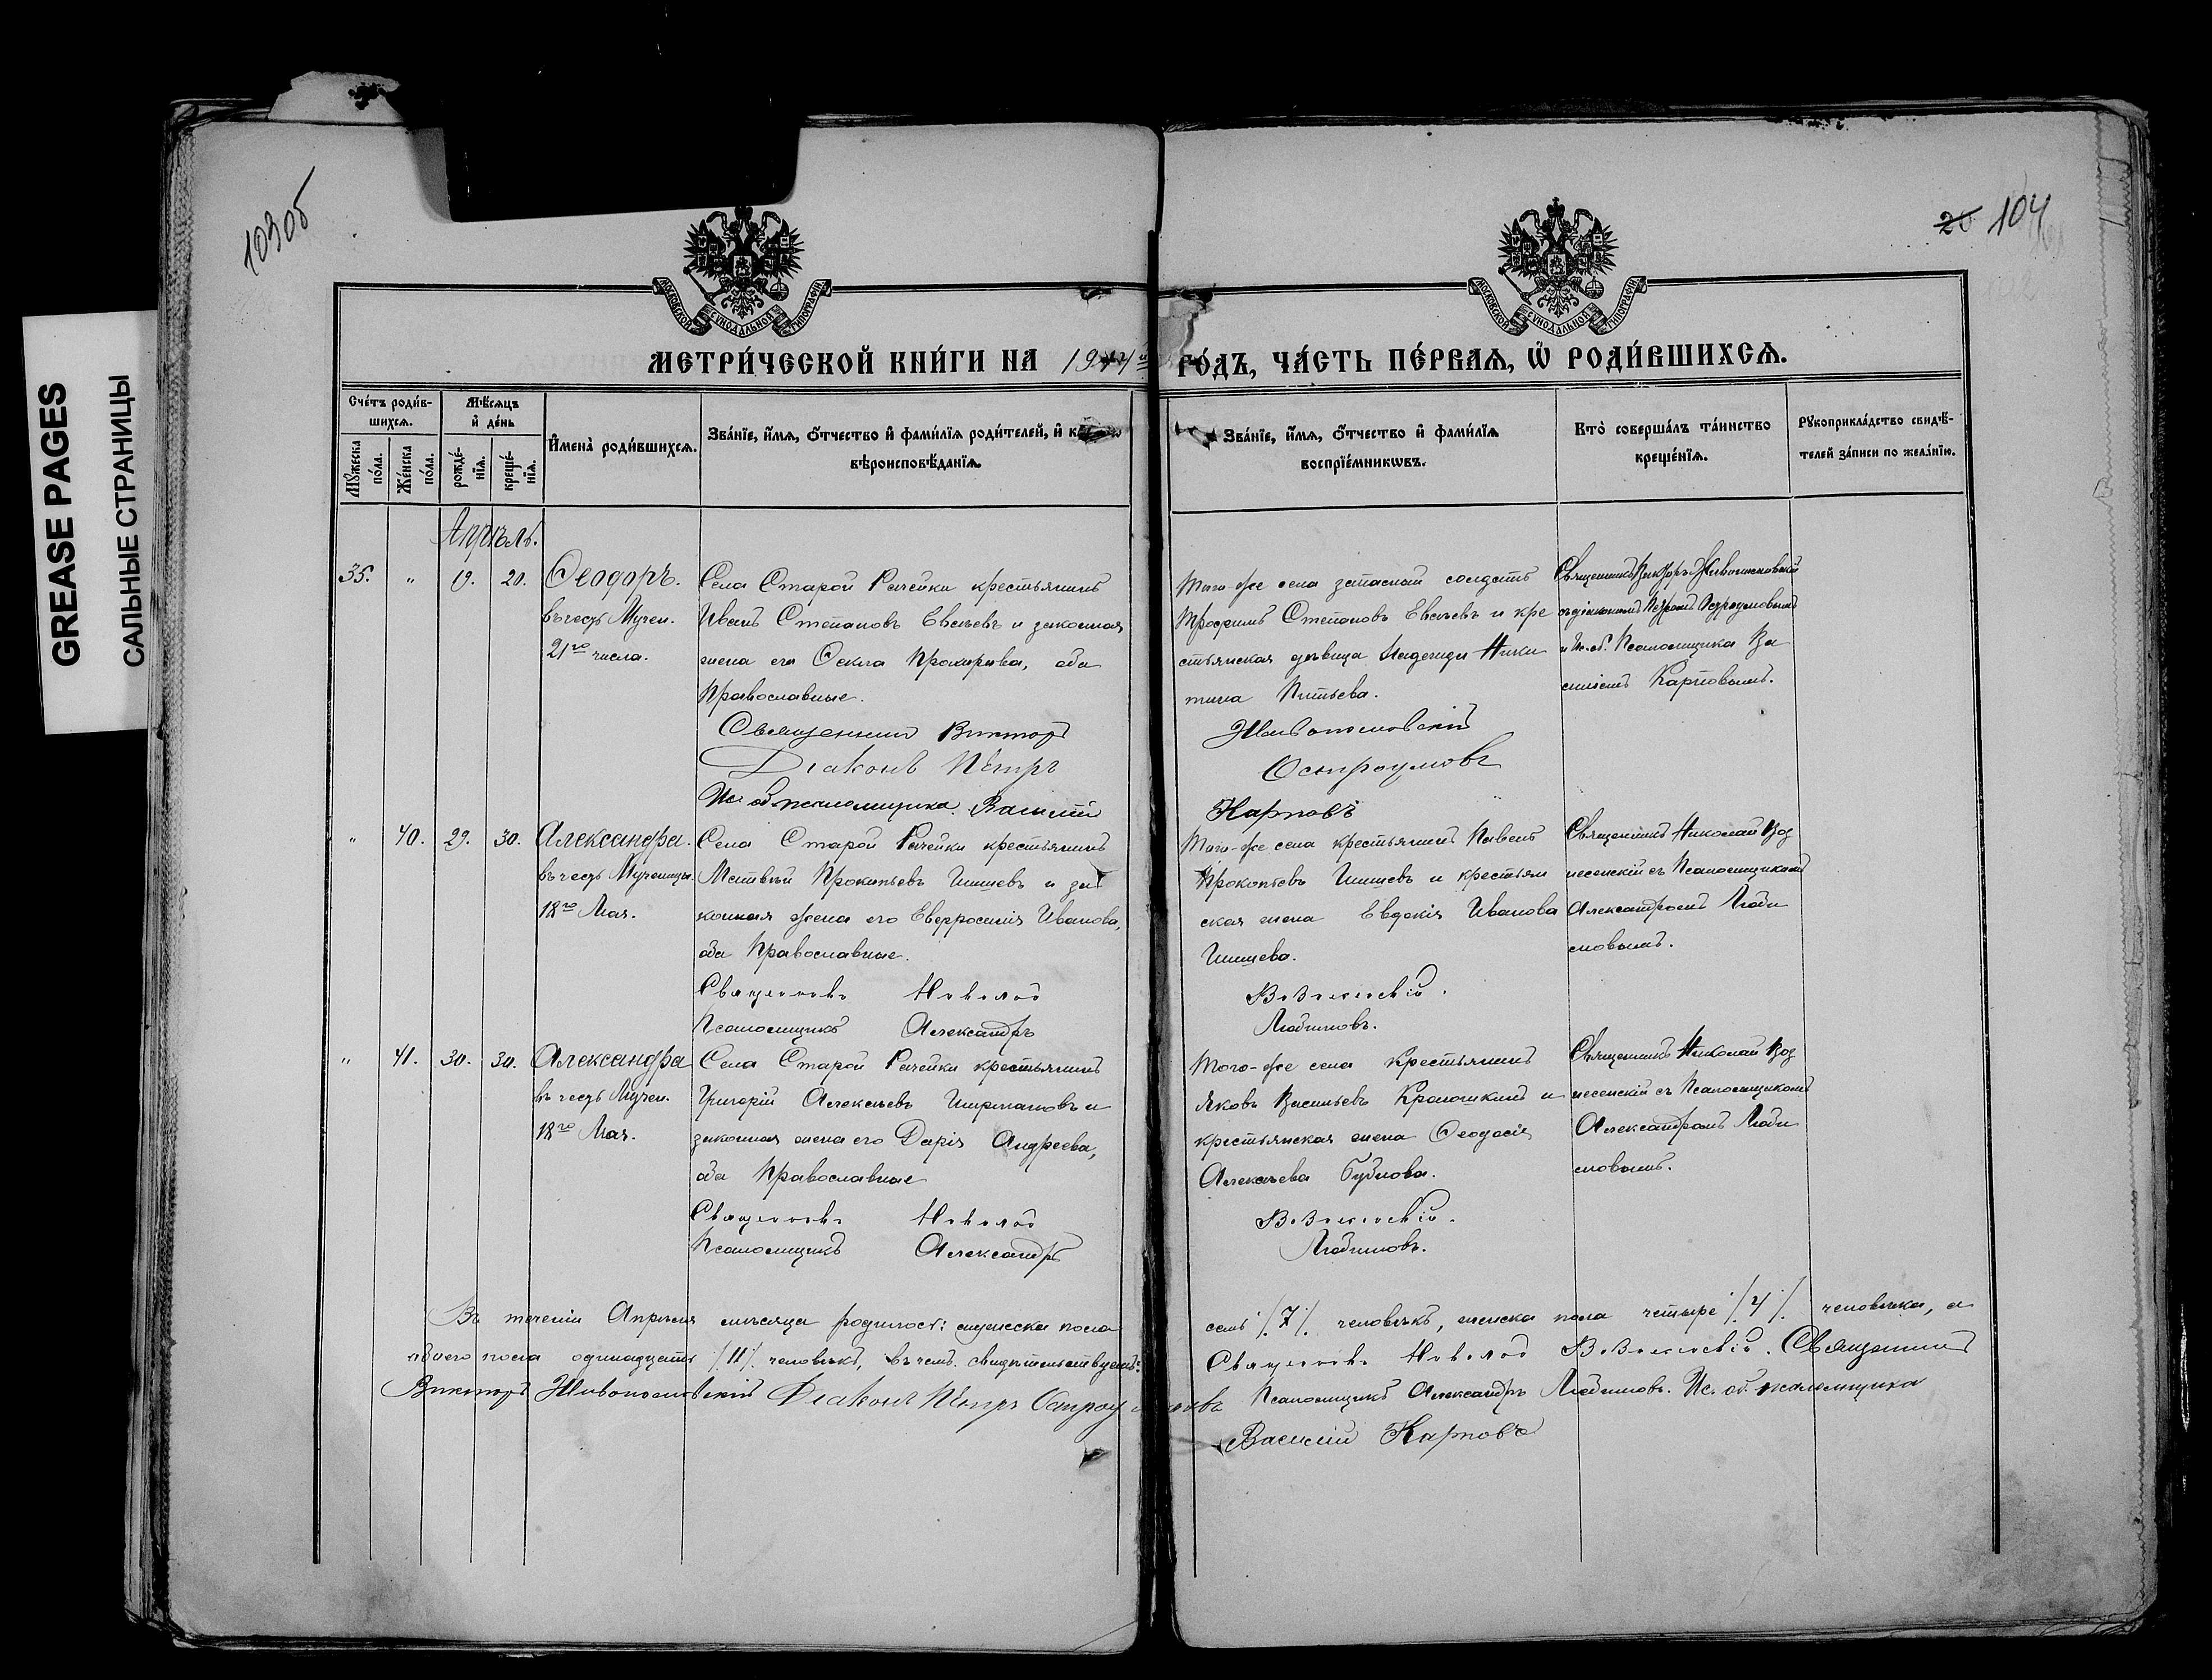 GREASE PAGES
САЛЬНЫЕ СТРАНИЦЫ
103об
20 104
МОСКОВСКОЙ СѴНОДАЛЬНОЙ ТИПОГРАФІИ
МОСКОВСКОЙ СѴНОДАЛЬНОЙ ТИПОГРАФІИ
МЕТРИ́ЧЕСКОЙ КНИ́ГИ НА
РО́ДЪ, ЧА́СТЬ ПЕ́РВАѦ, Ѡ҆ РОДИ́ВШИХСѦ.
Сче́тъ роди́в-
шихсѧ.
Мꙋ́жеска по́ла.
Же́нска по́ла.
Мѣ́сѧцъ
и҆ де́нь
рожде́-
нїѧ.
креще́-
нїѧ.
И҆мена̀ роди́вшихсѧ.
Зва́нїе, и҆́мѧ, ѻ҆́тчество и҆ фами́лїѧ роди́телей, и҆
вѣроисповѣ́данїѧ.
Зва́нїе, и҆́мѧ, ѻ҆́тчество и҆ фами́лїѧ
воспрїе́мникѡвъ.
Кто̀ соверша́лъ та́инство
креще́нїѧ.
Рꙋкоприкла́дство свидѣ́-
телей за́писи по жела́нїю.
Апрѣль.
35. " 19. 20. Ѳеодоръ.
въ честь Мучен.
21го числа.
Села Старой Рачейки крестьянинъ
Иванъ Степановъ Евсѣевъ и законная
жена его Ѳекла, оба
Православные.
Священникъ Викторъ
Діаконъ Петръ
Ис. об. псаломщика Василій
Того-же села запасной солдатъ
Трофимъ Степановъ Евсѣевъ и кре
стьянская дѣвица Надежда Ники
тина.
Живописовскій
Остроумовъ
Карповъ
Священникъ Викторъ
съ діакономъ Петромъ Остроумовымъ
и Ис. об. Псаломщика Ва
силіемъ Карповымъ.
" 40. 29. 30. Александра.
въ честь Мученицы.
18го Мая.
Села Старой Рачейки крестьянинъ
Матвѣй Прокопьевъ Шишевъ и за
конная жена его Евфросинія Иванова,
оба Православные.
Священникъ Николай
Псаломщикъ Александръ
Того-же села крестьянинъ Павелъ
Прокопьевъ Шишевъ и крестьян
ская жена Евдокія Иванова
Шишева.
Вознесенскій.
Любимовъ.
Священникъ Николай Воз
несенскій съ Псаломщикомъ
Александромъ Люби
мовымъ.
" 41. 30. 30. Александра
въ честь Мучен.
18го Мая.
Села Старой Рачейки крестьянинъ
Григорій Алексѣевъ Ширмановъ и
законная жена его Дарія Андреева,
оба Православные
Священникъ Николай
Псаломщикъ Александръ
Того-же села крестьянинъ
Яковъ Васильевъ и
крестьянская жена Ѳеодосія
Алексѣева Бубнова.
Вознесенскій.
Любимовъ.
Священникъ Николай Воз
несенскій съ Псаломщикомъ
Александромъ Люби
мовымъ.
Въ теченіи Апрѣля мѣсяца родилось: мужеска пола семь /7/ человѣкъ, женска пола четыре /4/ человѣка, а
обоего пола одинадцать /11/ человѣкъ, въ чемъ свидѣтельствуемъ: Священникъ Николай Вознесенскій. Священникъ
Викторъ Живописовскій Діаконъ Петръ Остроумовъ Псаломщикъ Александръ Любимовъ. Ис. об. псаломщика
Василій Карповъ